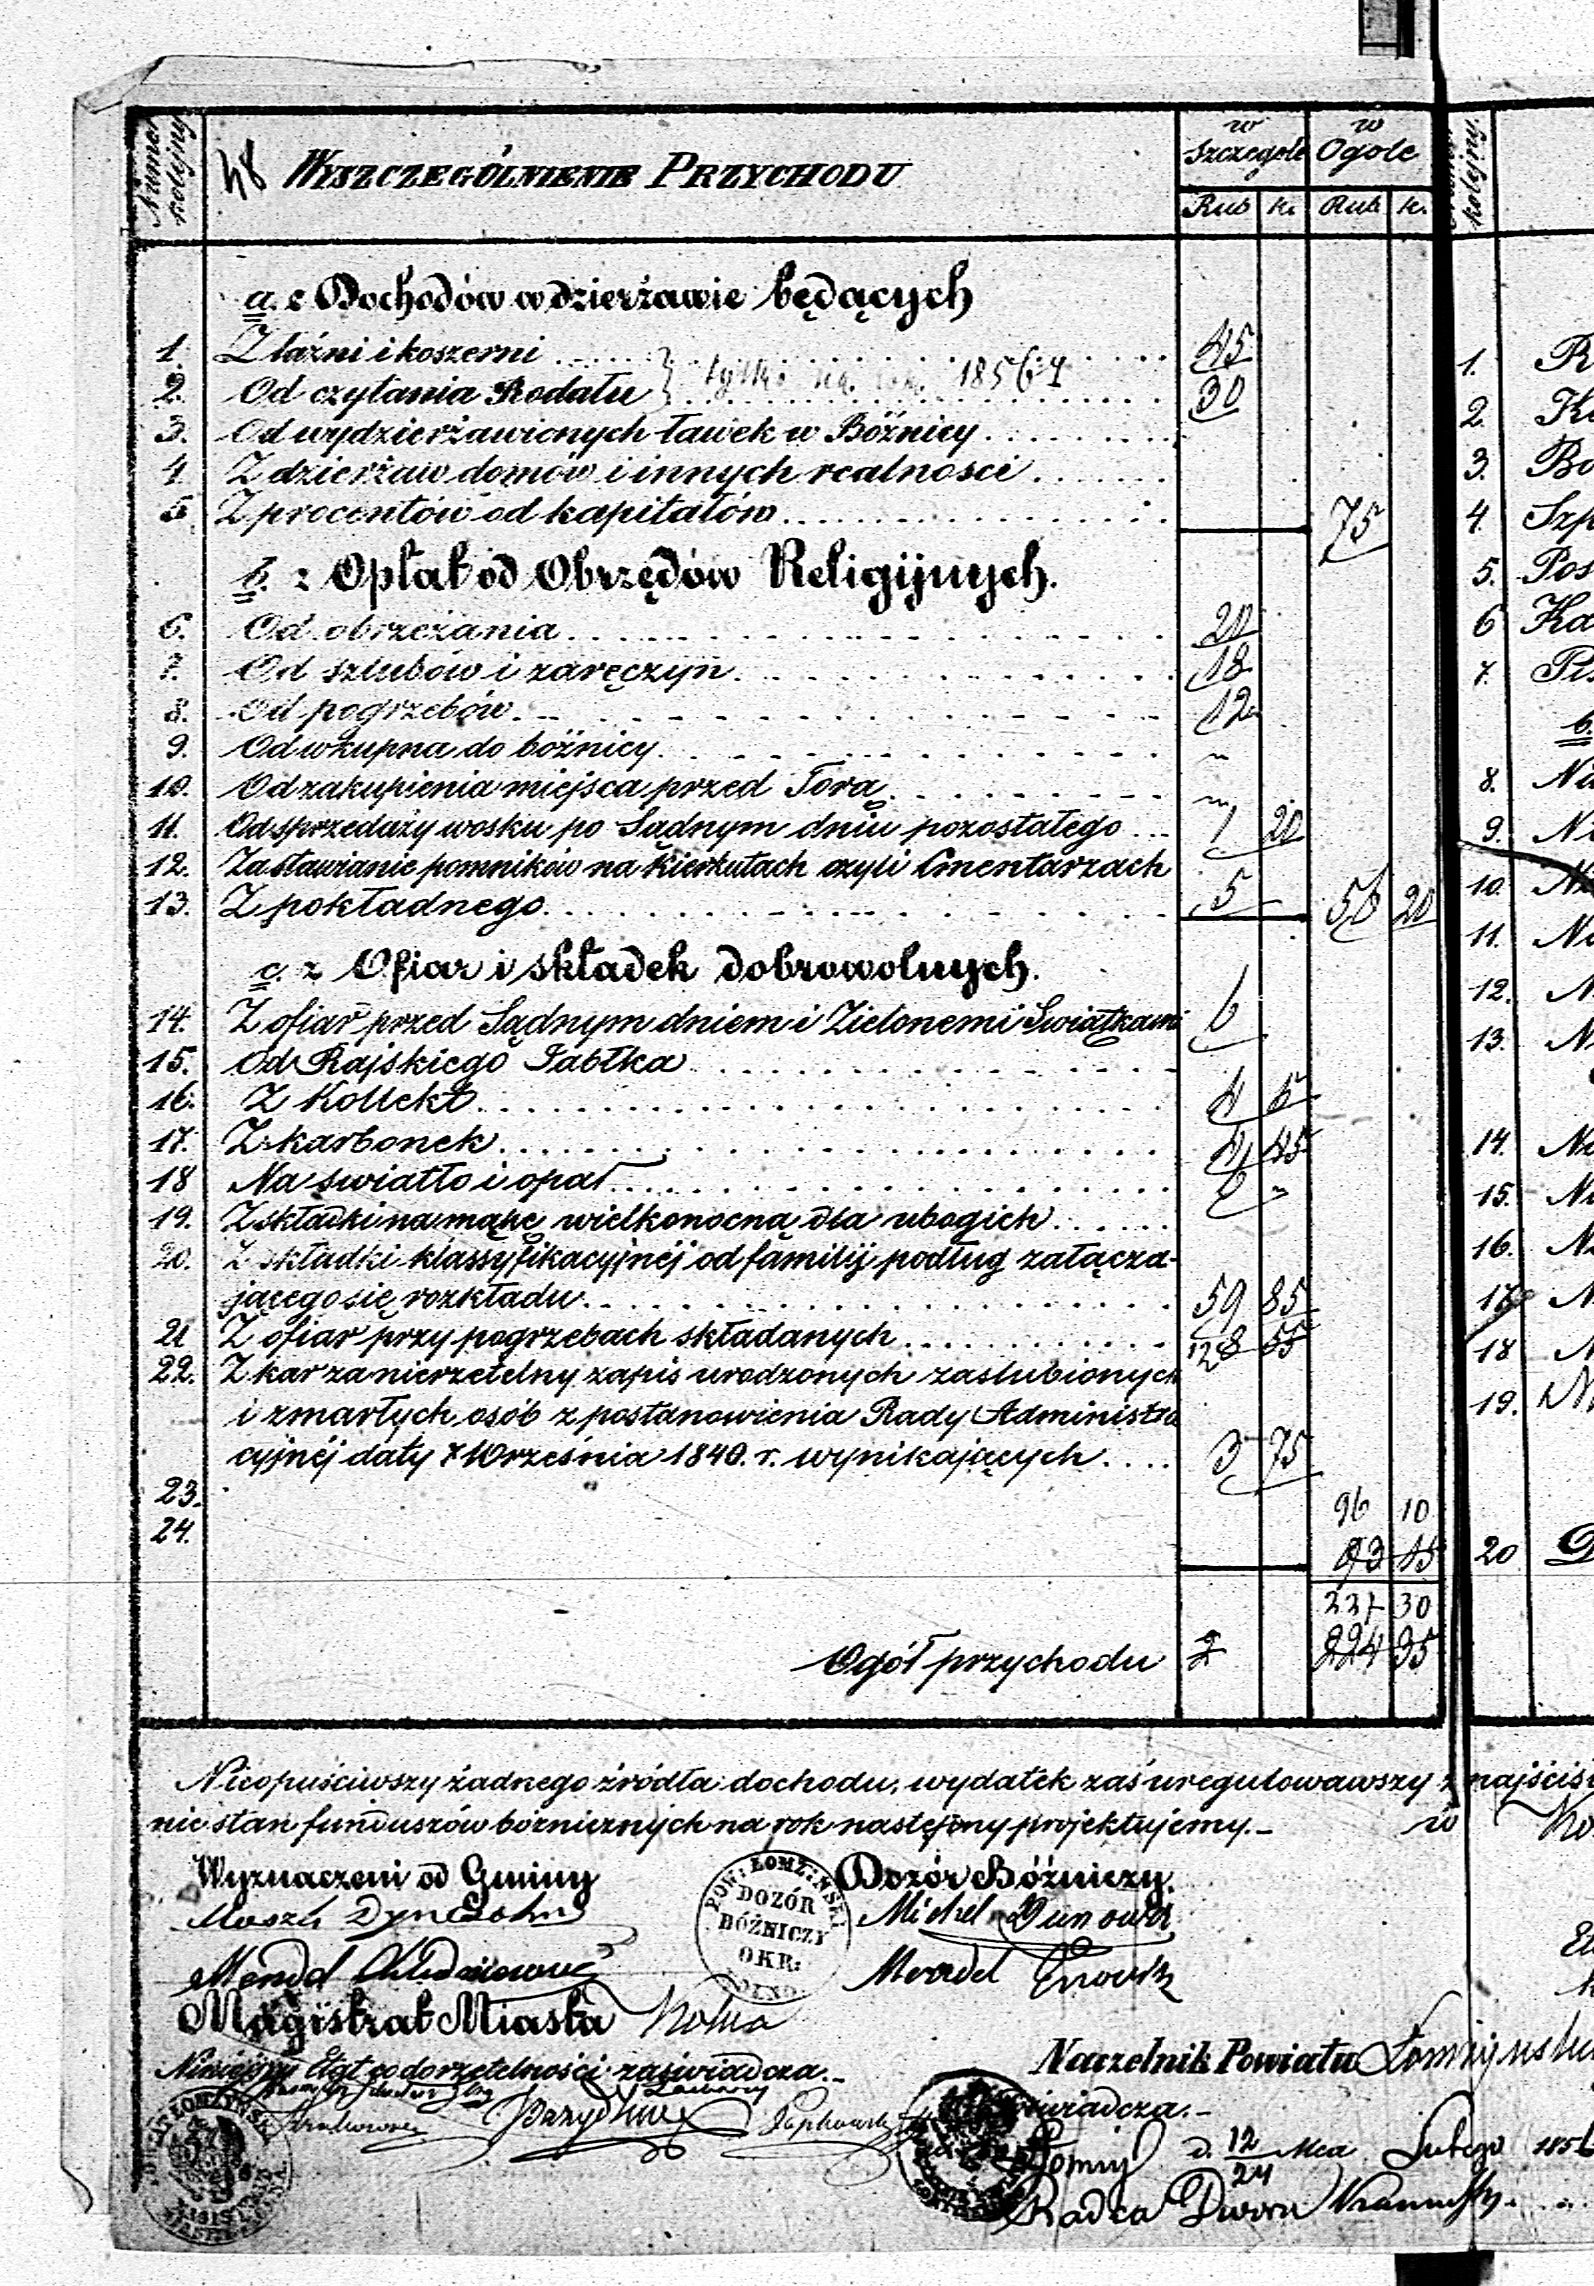 Numer kolejny
48 WYSZCZEGÓLNIENIE PRZYCHODU
w Szczegole
w Ogole
Rub k. Rub k.
kolejny.
a. z Dochodów w dzierżawie będących
1. Z łaźni i koszerni 45
2. Od czytania Rodału } tylko na rok 1856/7 30
3. Od wydzierżawionych ławek w Bóźnicy
4. Z dzierżaw domów i innych realności
5 Z procentów od kapitałów 75
b. z Opłat od Obrzędów Religijnych.
6. Od obrzezania 20
7. Od szlubów i zaręczyn 18
8. Od pogrzebów 12
9. Od wkupna do bóźnicy "
10. Od zakupienia miejsca przed Torą "
11. Od sprzedaży wosku po Sądnym dniu pozostałego 1 20
12. Za stawianie pomników na kierkutach czyli Cmentarzach
13. Z pokładnego 5 56 20
c. z Ofiar i składek dobrowolnych.
14. Z ofiar przed Sądnym dniem i Zielonemi Świątkami 6
15. Od Rajskiego Jabłka
16. Z Kollekt 4 5
17. Z skarbonek 4 45
18 Na światło i opał
19. Z składki na mąkę wielkonocną dla ubogich
20. Z składki klassyfikacyjnéj od familij podług załącza-
jącego się rozkładu 59 85
21 Z ofiar przy pogrzebach składanych
22. Z kar za nierzetelny zapis urodzonych zaślubionych
i zmarłych osób z postanowienia Rady Administra
cyjnéj daty 7 Września 1840. r. wynikających 3 75
23.
24.
96 10
93 45
227 30
Ogół przychodu 2 224 95
Nieopuściwszy żadnego źródła dochodu, wydatek zaś uregulowawszy z najściś
nie stan funduszów bóżnicznych na rok następny projektujemy.
w
Wyznaczeni od Gminy
Dozór Bóźniczy.
POW: ŁOMŻYŃSKI
DOZÓR
BÓŹNICZY
OKR:
Michel
Magistrat Miasta Kolna
Niniejszy Etat co do rzetelności zaświadcza.
Naczelnik Powiatu Łomżyńsk
świadcza.
d. 12/24 Mca Lutego 1856
Radca Dworu
1. R
2. K
3. Bo
4. Szp
5. Pos
6 Ka
7. Pi
b.
8. Na
9. N
10. Na
11. Na
12. N
13. N
14. Na
15. Na
16. Na
17. N
18 N
19. N
20